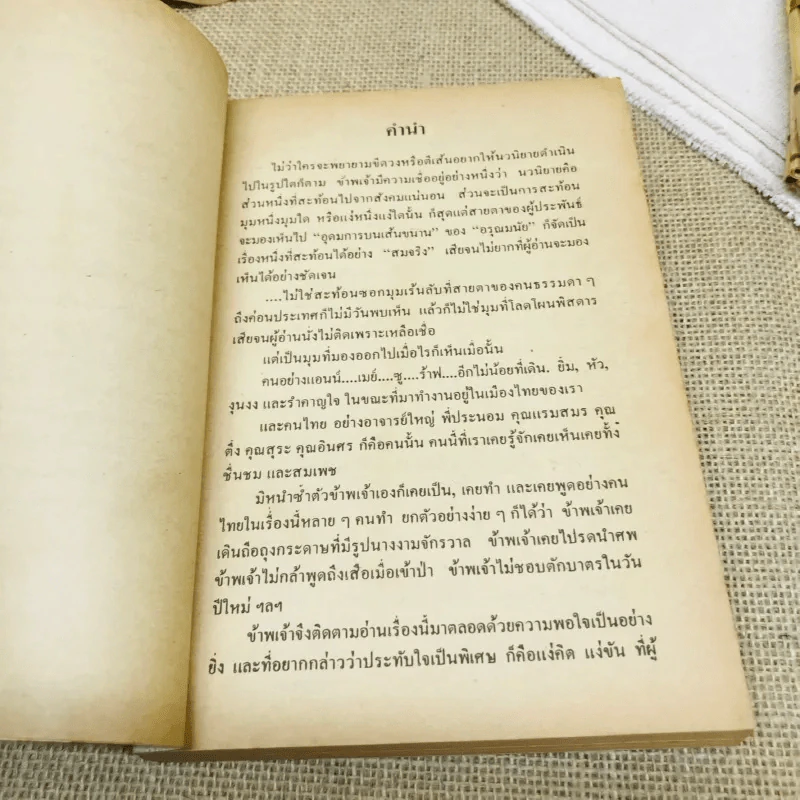 คำนำ
ไม่ว่าใครจะพยายามขีดวงหรือตีเส้นอยากให้นวนิยายดำเนิน
ไปในรูปใดก็ตาม ข้าพเจ้ามีความเชื่ออยู่อย่างหนึ่งว่า นวนิยายคือ
ส่วนหนึ่งที่สะท้อนไปจากสังคมแน่นอน ส่วนจะเป็นการสะท้อน
มุมหนึ่งมุมใด หรือแง่หนึ่งแง่ใดนั้น ก็สุดแต่สายตาของผู้ประพันธ์
จะมองเห็นไป “อุดมการบนเส้นขนาน” ของ “อรุณมนัย” ก็จัดเป็น
เรื่องหนึ่งที่สะท้อนได้อย่าง “สมจริง” เสียจนไม่ยากที่ผู้อ่านจะมอง
เห็นได้อย่างชัดเจน
....ไม่ใช่สะท้อนซอกมุมเร้นลับที่สายตาของคนธรรมดา ๆ
ถึงค่อนประเทศก็ไม่มีวันพบเห็น แล้วก็ไม่ใช่มุมที่โลดโผนพิสดาร
เสียจนผู้อ่านนั่งไม่ติดเพราะเหลือเชื่อ
แต่เป็นมุมที่มองออกไปเมื่อไรก็เห็นเมื่อนั้น
คนอย่างแอนน์....เมย์....ซู....ร้าฟ....อีกไม่น้อยที่เดิน. ยิ้ม, หัว,
งุนงง และรำคาญใจ ในขณะที่มาทำงานอยู่ในเมืองไทยของเรา
และคนไทย อย่างอาจารย์ใหญ่ พี่ประนอม คุณแรมสมร คุณ
ติ๋ง คุณสุระ คุณอินศร ก็คือคนนั้น คนนี้ที่เราเคยรู้จักเคยเห็นเคยทั้ง
ชื่นชม และสมเพช
มิหนำซ้ำตัวข้าพเจ้าเองก็เคยเป็น, เคยทำ และเคยพูดอย่างคน
ไทยในเรื่องนี้หลาย ๆ คนทำ ยกตัวอย่างง่าย ๆ ก็ได้ว่า ข้าพเจ้าเคย
เดินถือถุงกระดาษที่มีรูปนางงามจักรวาล ข้าพเจ้าเคยไปรดน้ำศพ
ข้าพเจ้าไม่กล้าพูดถึงเสือเมื่อเข้าป่า ข้าพเจ้าไม่ชอบตักบาตรในวัน
ปีใหม่ ฯลฯ
ข้าพเจ้าจึงติดตามอ่านเรื่องนี้มาตลอดด้วยความพอใจเป็นอย่าง
ยิ่ง และที่อยากกล่าวว่าประทับใจเป็นพิเศษ ก็คือแง่คิด แง่ขัน ที่ผู้